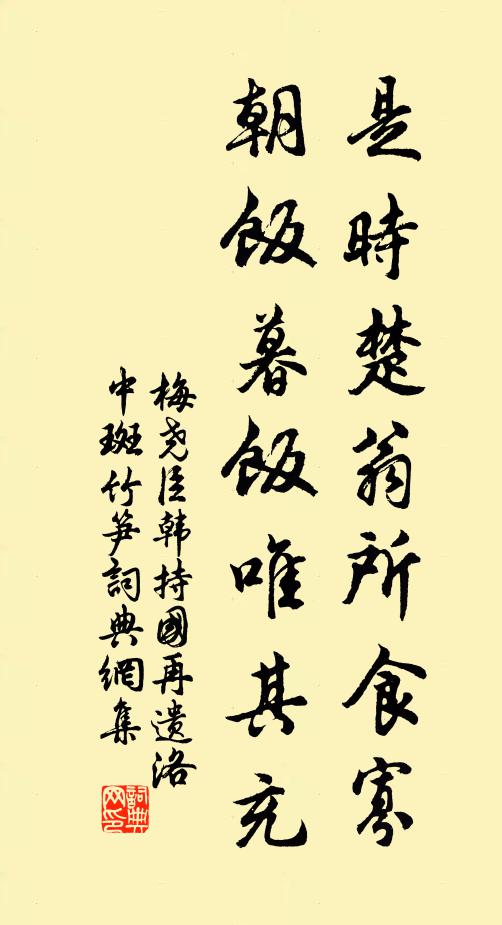 是時楚翁所食寡
朝飯暮飯唯其充
梅尧臣韩持國再遺洛
中斑竹笋詞典網集
詞典
网印